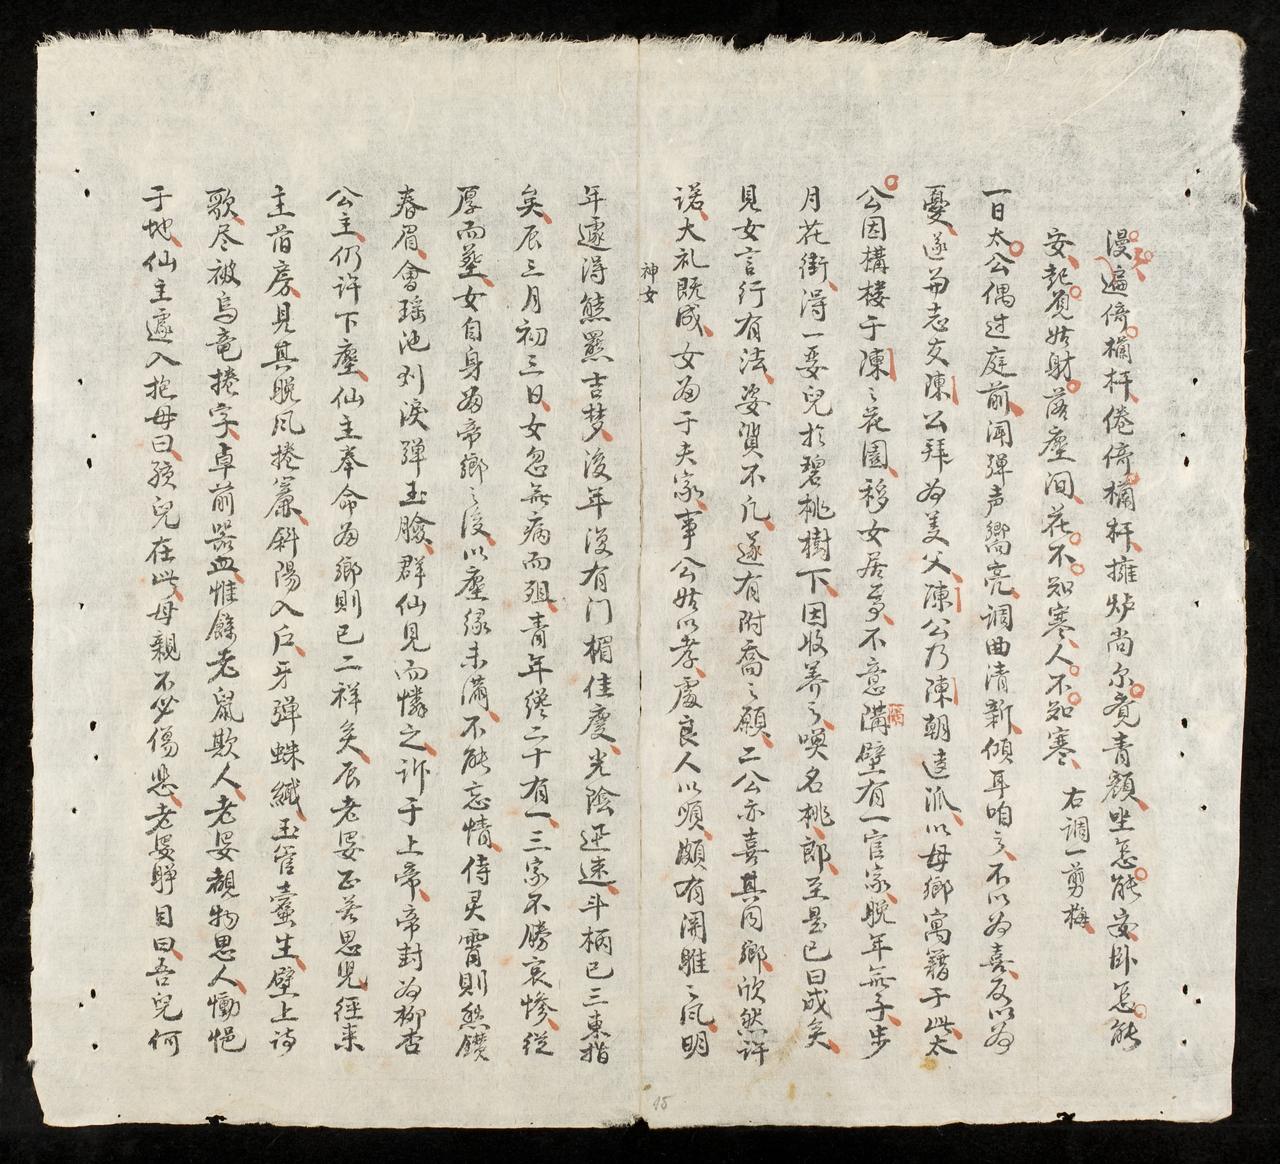 漫遍倚欄杆倦倚欄杆擁炉尚尔竟青顏坐怎能安卧怎能
安起覓姑射落塵间花不知寒人不知寒 右調一剪梅
一日太公偶过庭前闻弹声嚮亮调曲清新傾耳咱之不以为喜反以为
憂遂与志友陳公拜为美父陳公乃陳朝遠派以母鄉寓籍于此太
公因構楼于陳之花園移女居焉不意隔壁有一官家晚年無子步
月花街得一嬰兒於碧桃樹下因收养之喚名桃郎至是已日成矣
見女言行有法姿貭不凡遂有附喬之願二公亦喜其同鄉欣然許
諾大礼既成女为于夫家事公姑以孝處良人以順頗有関雎之风明
神女
年遽得熊羆吉梦後年復有门楣佳慶光陰迅速斗柄已三東指
矣辰三月初三日女忽無病而殂青年纔二十有一三家不勝哀惨從
厚而葬女自身为帝鄉之後以塵缘未满不能忘情侍灵霄則愁鑽
春眉會瑶池刘淚弹玉臉群仙見而憐之訴于上帝帝封为柳杏
公主仍許下塵仙主奉命为鄉則已二祥矣辰老嫗正苦思兒徑来
主前房見其晚风捲簾斜陽入户牙弹蛛織玉管蠹生壁上詩
歌尽被烏竜捲字卓前器皿惟餘老鼠欺人老妥覩物思人慟悒
于地仙主遽入抱母曰孩兒在此母親不必傷悲老妥睜目曰吾兒何
15